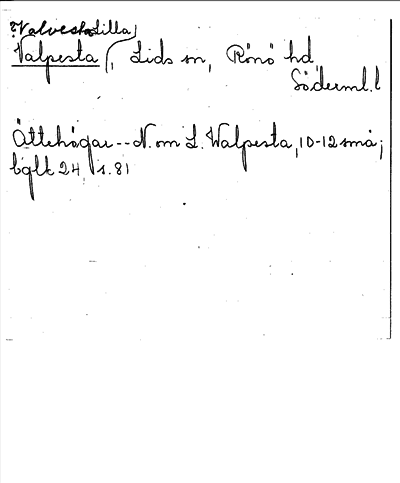 ? Valvesta Lilla)
Valpesta (, Lids sn, Rönö hd
Söderml. l
Ättehögar -- N. om L. Walpesta, 10-12 små;
bglt 24, s. 81